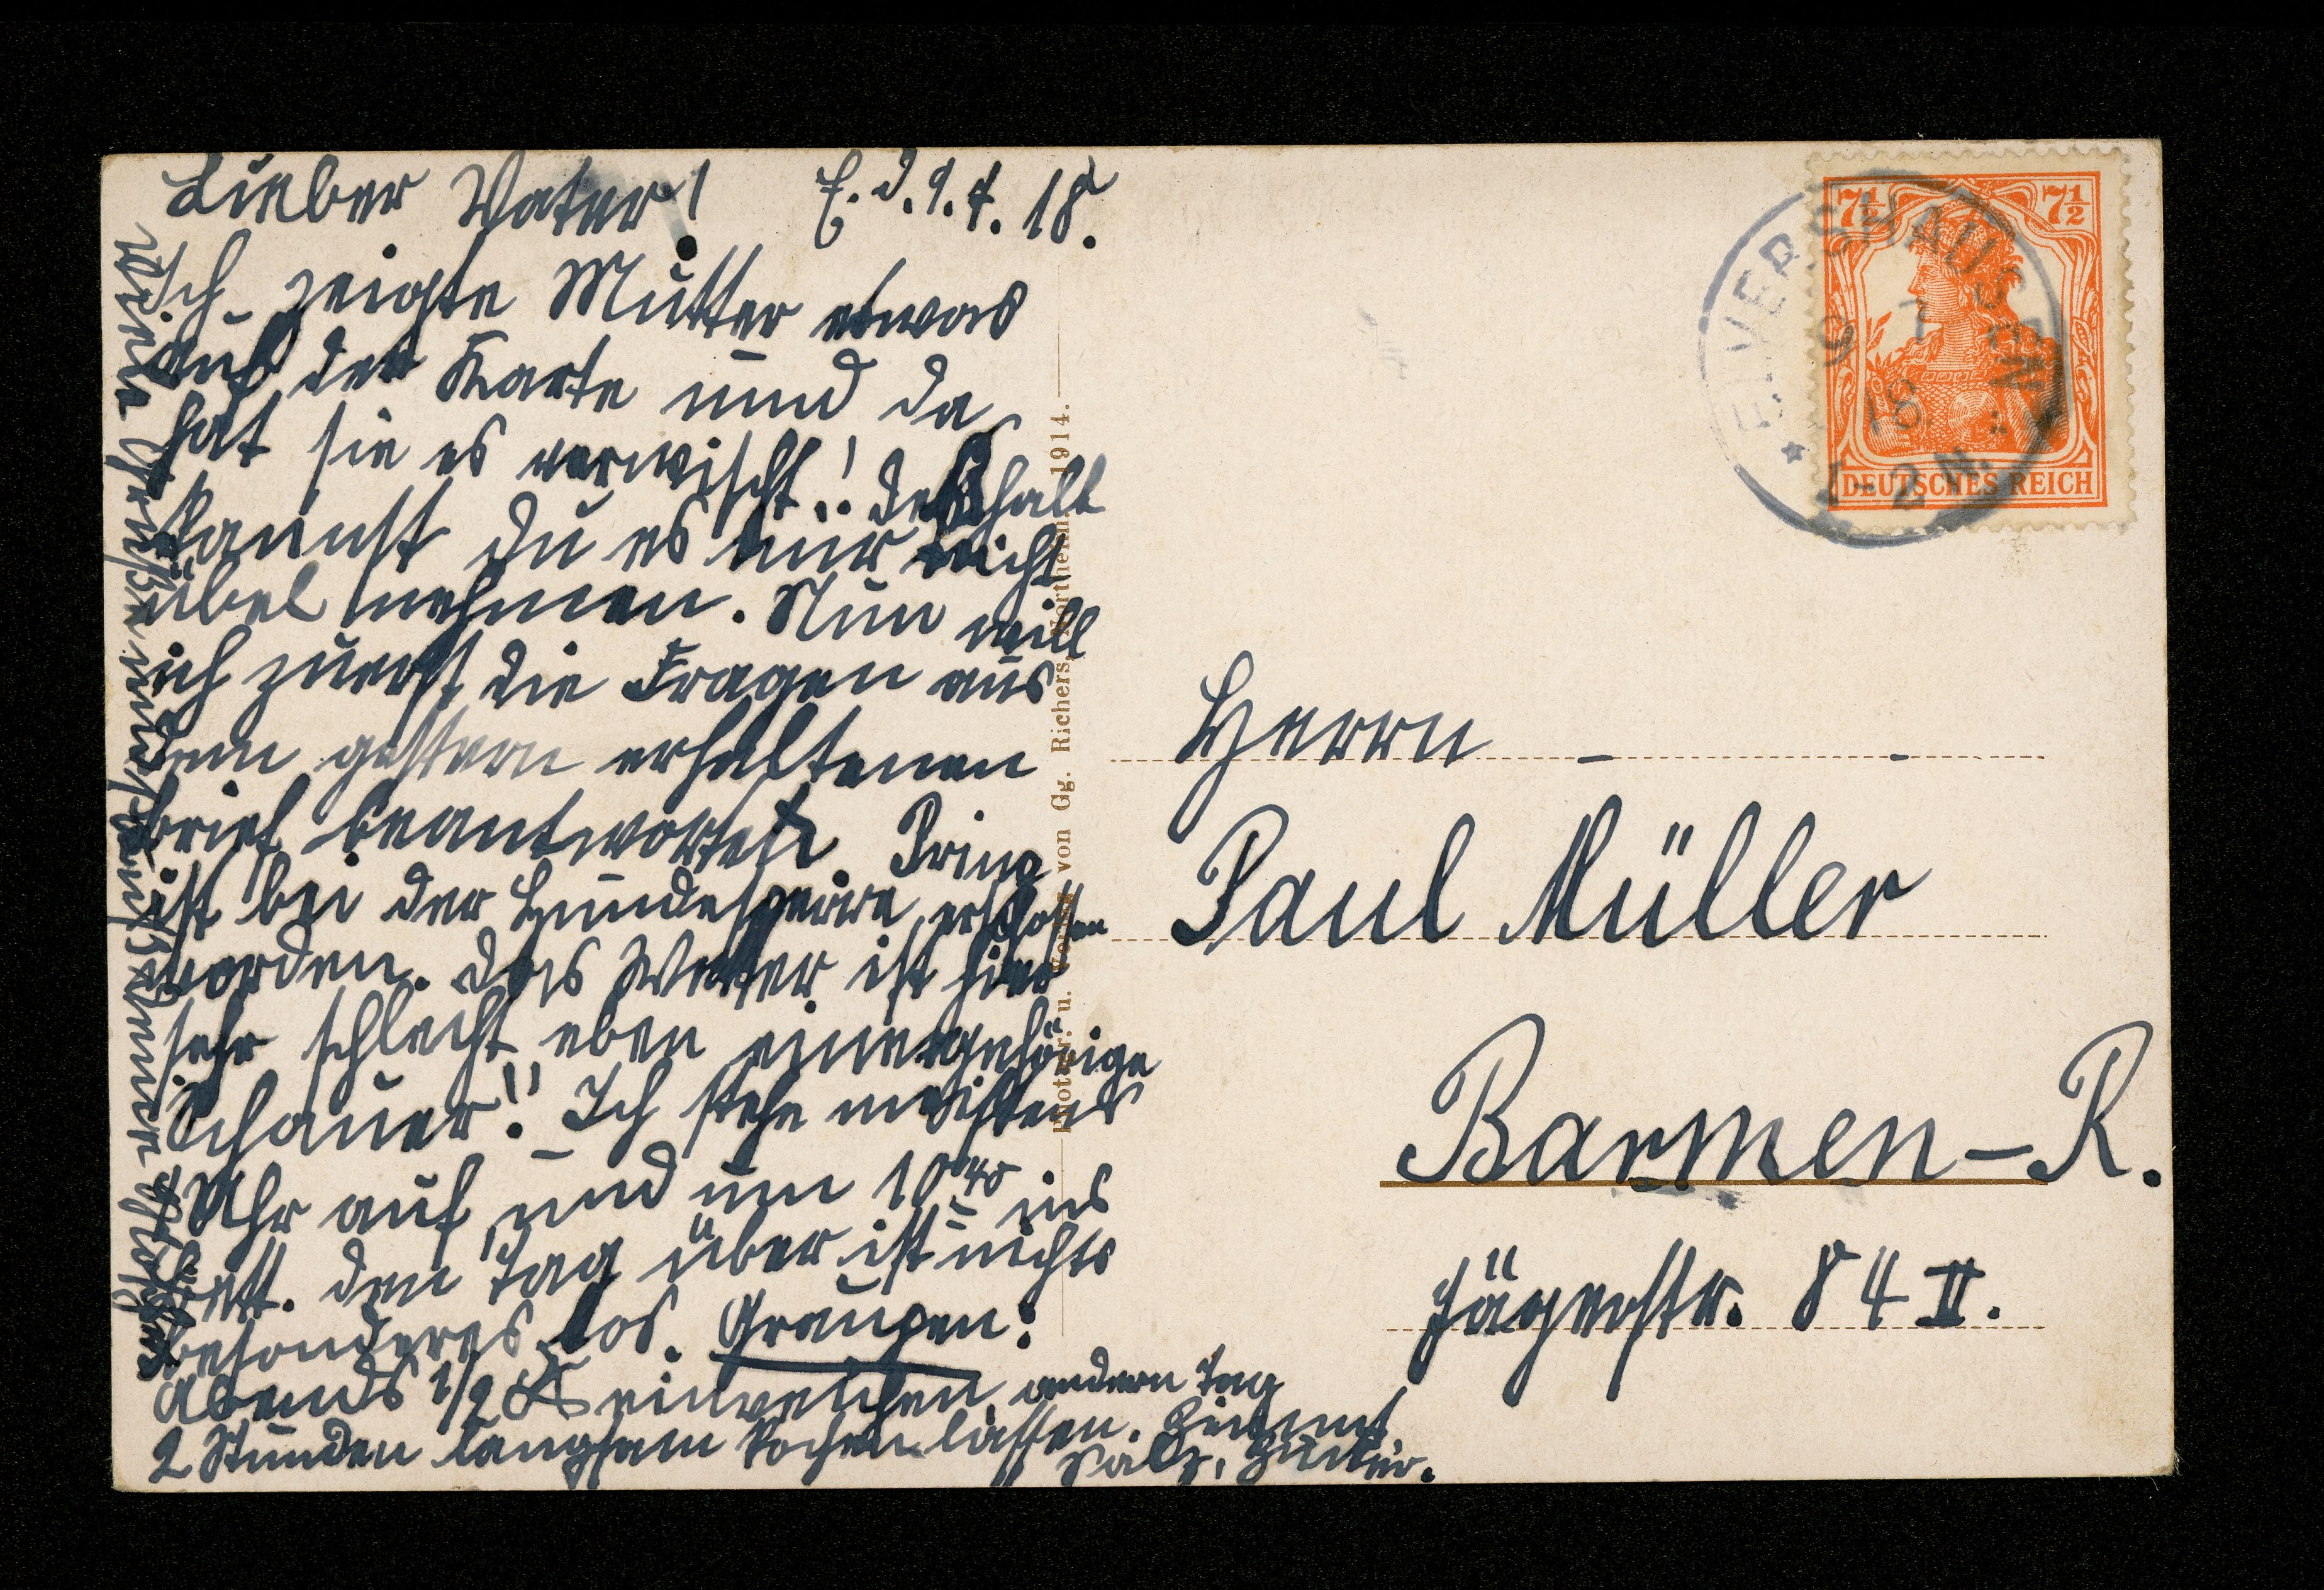 Lieber Vater! E. d. 9. 7. 18.
Ich zeigte Mutter etwas
auf der Karte und da
hat sie es verwischt!! Deßhalb
kannst Du es mir nicht
übel nehmen. Nun will
ich zuerst die Fragen aus
dem gestern erhaltenen
Brief beantworten. Prinz
ist bei der Hundesperre erschossen
worden. Das Wetter ist hier
sehr schlecht, eben ein gehörige
Schauer!! Ich stehe meistens
Uhr auf, und um 10⁴⁰ ins
Bett. Den Tag über ist nichts
besonderes los. Graupen:
Abends 1/2 ℔ einweichen andern Tag
2 Stunden langsam kochen lassen.
Salz, Zucker.
Viele Grüße und
Herrn
Paul Müller
Barmen-R.
Jägerstr. 84 II.
7½ 7½
DEUTSCHES REICH
ELVERSHAUSEN
9 7
18
1-2 N.
Photogr. u. Verlag von Gg. Richers, Northeim. 1914.